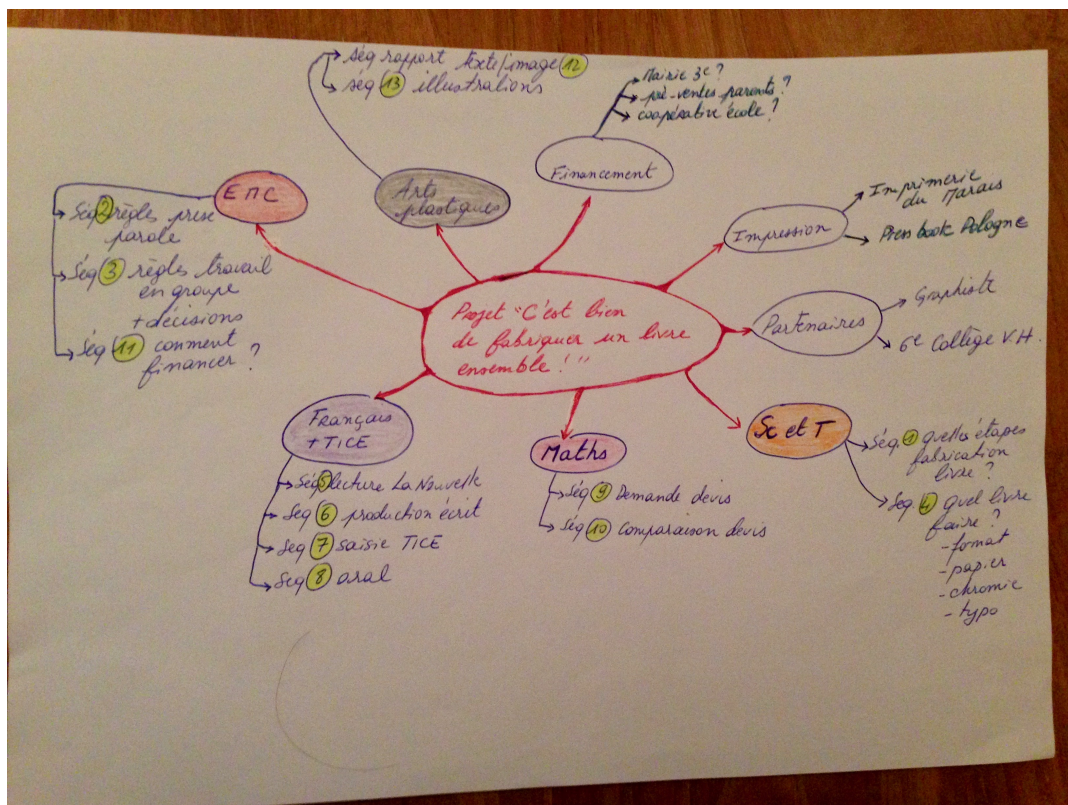 Projet "C'est bien
de fabriquer un livre
ensemble!"
EMC
Séq 2 règles prise
parole
Séq 3 règles travail
en groupe
+ décisions
Séq 11 comment
financer ?
Arts
plastiques
séq rapport texte/image 12
séq 13 illustrations
Financement
Mairie 3e ?
pré-ventes parents ?
coopérative école ?
Impression
Imprimerie
du Marais
Press book Pologne
Partenaires
Graphiste
6e Collège V.H.
Sc et T
Séq. 1 quelles étapes
fabrication
livre ?
Seq. 4 quel livre
faire ?
- format
- papier
- chromie
- typo
Maths
Séq 9 Demande devis
Séq 10 Comparaison devis
Français
+ TICE
Séq 5 lecture La Nouvelle
Seq 6 production écrit
Seq 7 saisie TICE
Seq 8 oral